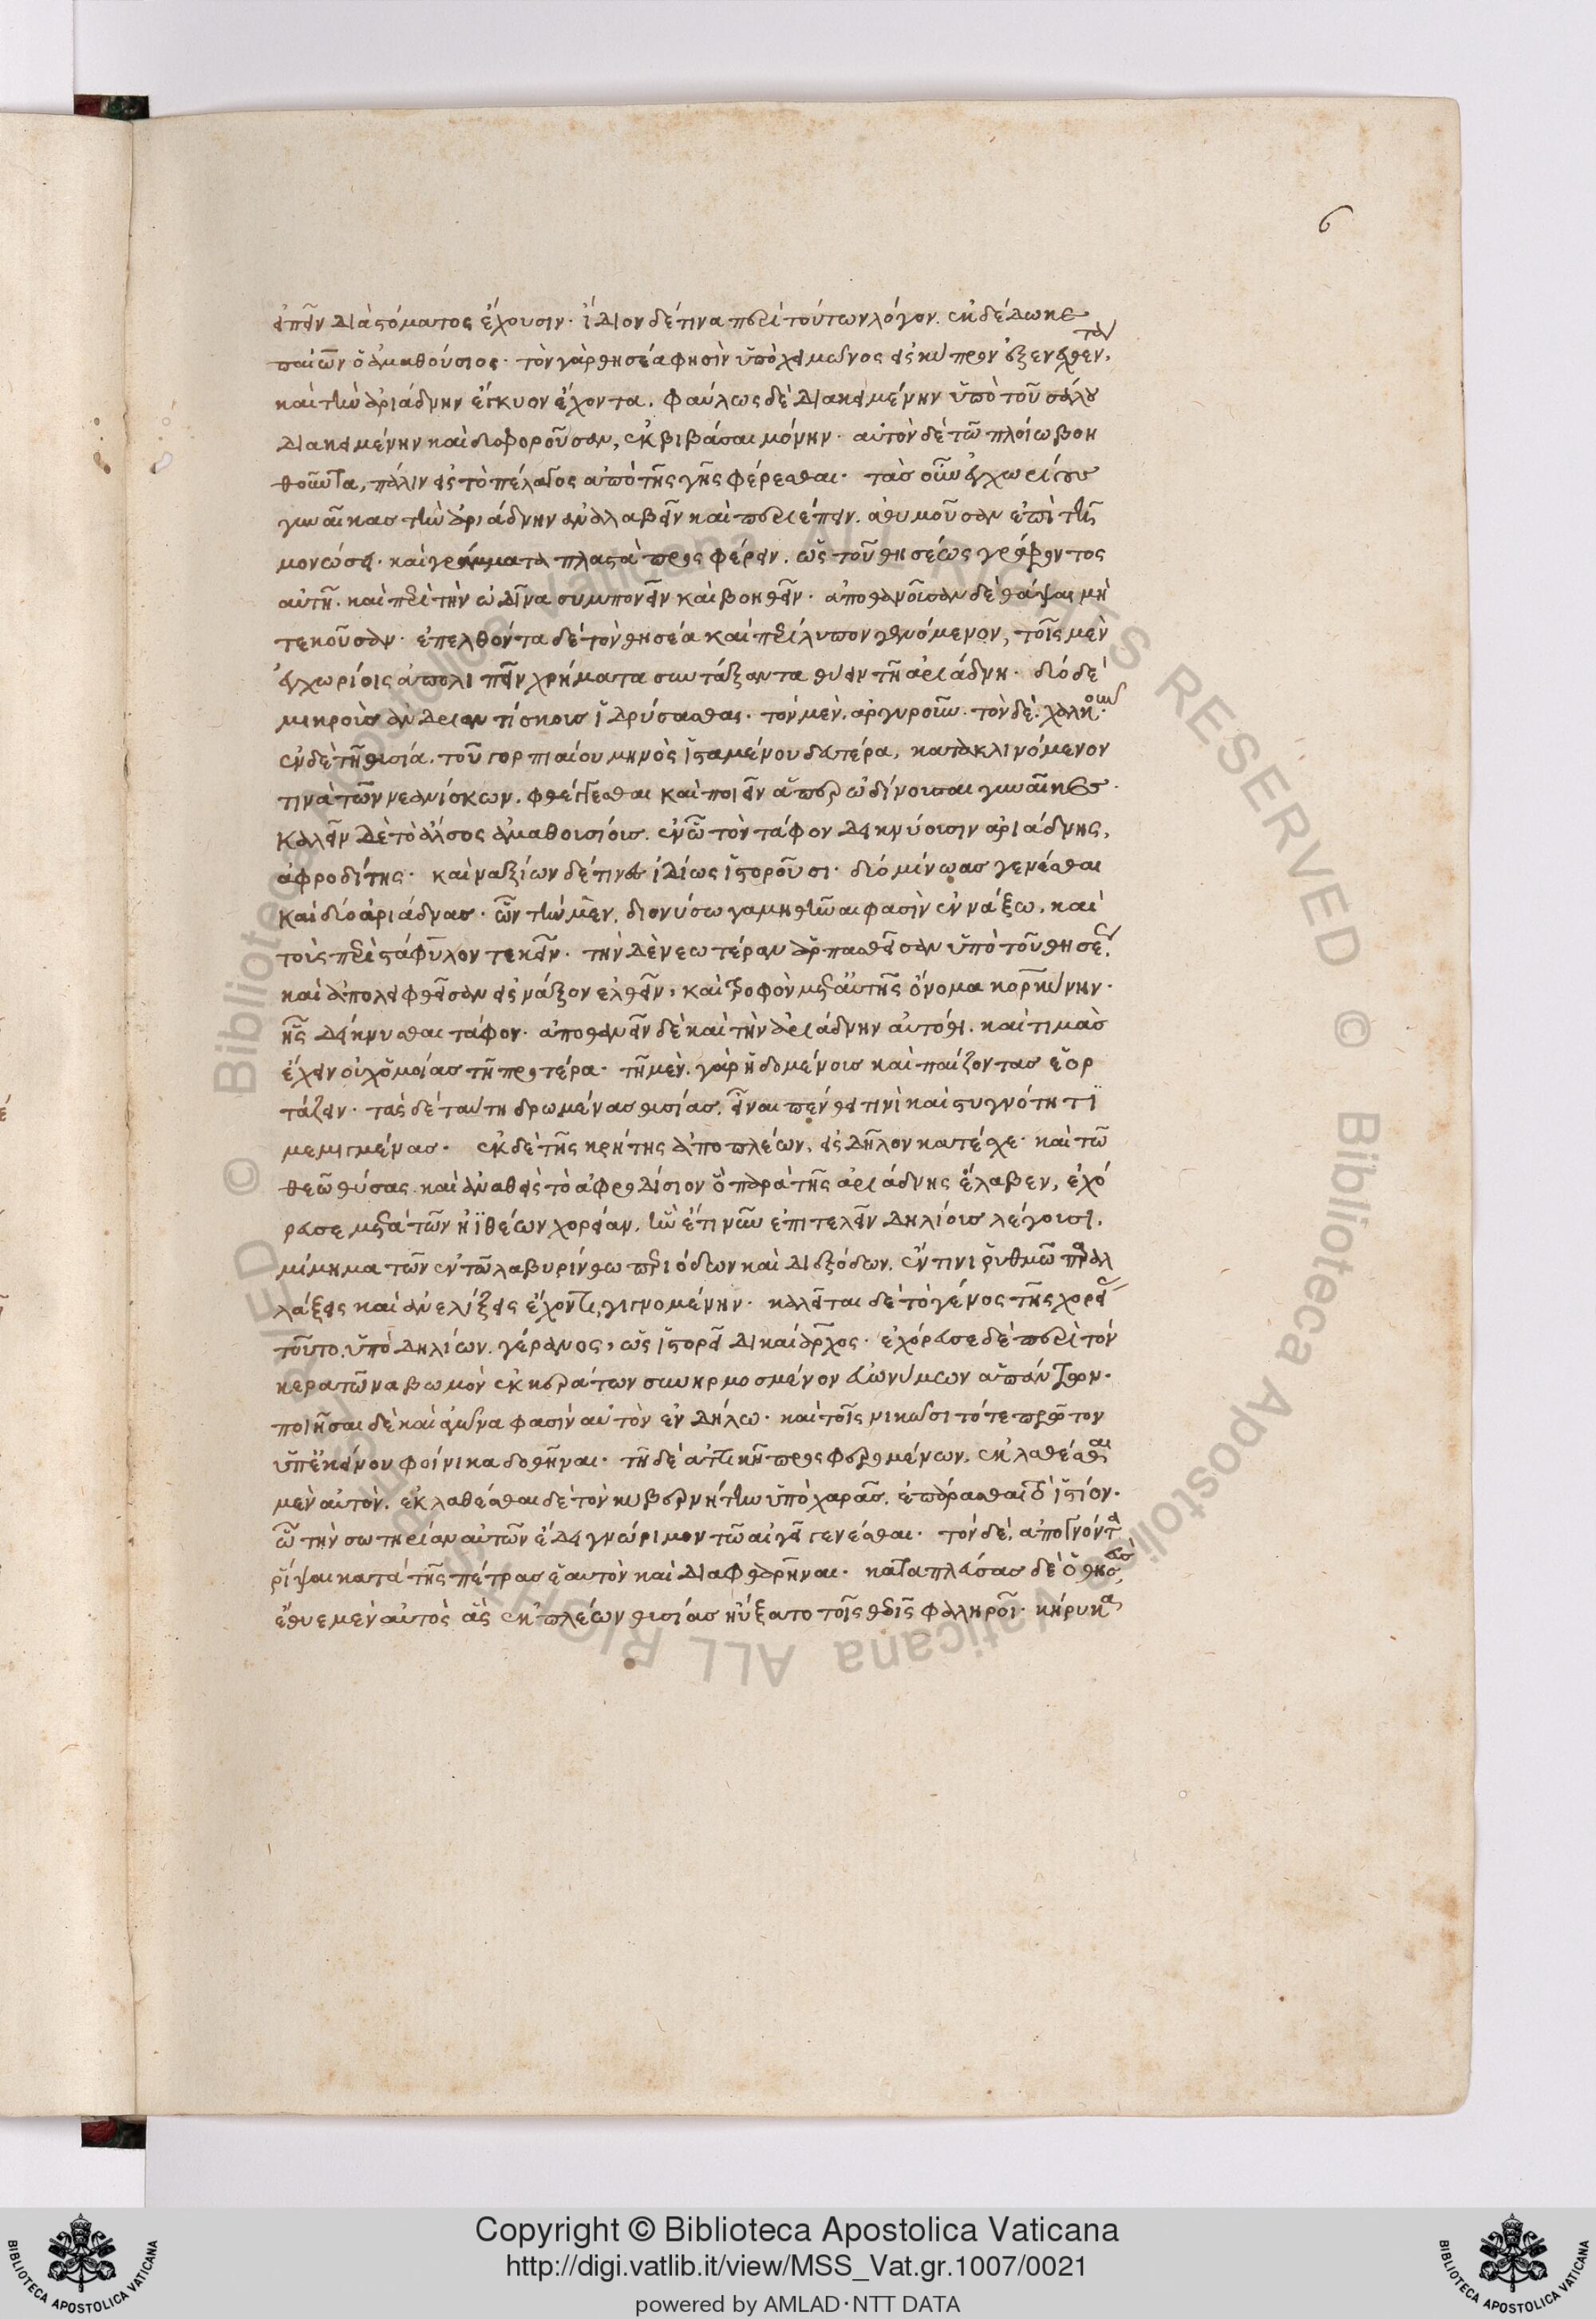 6
εἰπεῖν διὰ στόματος ἔχουσιν· ἴδιον δέ τινα περὶ τούτων λόγον. ἐκδέδωκε
παίων ὁ ἀμαθούσιος· τὸν γὰρ θησέα φησὶν ὑπὸ χειμῶνος εἰς κύπρον ἐξενεχθέντα,
καὶ τὴν ἀριάδνην ἔγκυον ἔχοντα. φαύλως δὲ διακειμένην ὑπὸ τοῦ σάλου
διακειμένην καὶ διοφοροῦσαν, ἐκβιβάσαι μόνην· αὐτὸν δὲ τῶ πλοίω βοη
θοῦντα, πάλιν εἰς τὸ πέλαγος ἀπὸ τῆς γῆς φέρεσθαι· τὰς οὖν ἐγχωρίους
γυναῖκας τὴν ἀριάδνην ἀναλαβεῖν καὶ περιέπειν. ἀθυμοῦσαν ἐπὶ τῆ
μονώσει· καὶ γράμματα πλαστὰ προσφέρειν. ὡς τοῦ θησέως γράφοντος
αὐτῆ. καὶ περὶ τὴν ὠδῖνα συμπονεῖν καὶ βοηθεῖν· ἀποθανοῦσαν δὲ θάψαι μὴ
τεκοῦσαν· ἐπελθόντα δὲ τὸν θησέα καὶ περίλυπον γενόμενον, τοῖς μὲν
ἐγχωρίοις ἀπολιπεῖν χρήματα συντάξαντα θύειν τῆ ἀριάδνη· δύο δὲ
μικροὺς ἀνδριαντίσκους ἱδρύσασθαι· τὸν μὲν. ἀργυροῦν. τὸν δὲ. χαλκοῦν·
ἐν δὲ τῆ θυσία. τοῦ γορπιαίου μηνὸς ἱσταμένου δευτέρα, κατακλινόμενον
τινὰ τῶν νεανίσκων. φθέγγεσθαι καὶ ποιεῖν ἅπερ ὠδίνουσαι γυναῖκες·
καλεῖν δὲ τὸ ἄλσος ἀμαθουσίους. ἐν ὧ τὸν τάφον δεικνύουσιν ἀριάδνης,
ἀφροδίτης· καὶ ναξίων δέ τινες ἰδίως ἱστοροῦσι· δύο μίνωας γενέσθαι
καὶ δύο ἀριάδνας· ὧν τὴν μὲν. διονύσω γαμηθῆναι φασὶν ἐν νάξω. καὶ
τοὺς περὶ στάφυλον τεκεῖν· τὴν δὲ νεωτέραν ἁρπασθεῖσαν ὑπὸ τοῦ θησέως
καὶ ἀπολειφθεῖσαν εἰς νάξον ἐλθεῖν, καὶ τροφὸν μετ' αὐτῆς ὄνομα κορκύνην·
ἧς δείκνυσθαι τάφον· ἀποθανεῖν δὲ καὶ τὴν ἀριάδνην αὐτόθι. καὶ τιμὰς
ἔχειν οὐχ ὁμοίας τῆ προτέρα· τῆ μὲν. γὰρ ἡδομένους καὶ παίζοντας ἑορ
τάζειν· τὰς δὲ ταύτη δρωμένας θυσίας. εἶναι πένθει τινὶ καὶ στυγνότητι
μεμιγμένας· ἐκ δὲ τῆς κρήτης ἀποπλέων, εἰς δῆλον κατέσχε· καὶ τῶ
θεῶ θύσας καὶ ἀναθεὶς τὸ ἀφροδίσιον ὃ παρὰ τῆς ἀριάδνης ἔλαβεν, ἐχό
ρευσε μετὰ τῶν ἠϊθέων χορείαν. ἣν ἔτι νῦν ἐπιτελεῖν δηλίους λέγουσι.
μίμημα τῶν ἐν τῶ λαβυρίνθω περιόδων καὶ διεξόδων. ἔν τινι ῥυθμῶ παραλ
λάξεις καὶ ἀνελίξεις ἔχοντι, γιγνομένην· καλεῖται δὲ τὸ γένος τῆς χορείας
τοῦτο. ὑπὸ δηλίων. γέρανος, ὡς ἱστορεῖ δικαίαρχος· ἐχόρευσε δὲ περὶ τὸν
κερατῶνα βωμὸν ἐκ κεράτων συνηρμοσμένον εὐωνύμων ἁπάντων·
ποιῆσαι δὲ καὶ ἀγῶνα φασὶν αὐτὸν ἐν δήλω· καὶ τοῖς νικῶσι τότε πρῶτον
ὑπ' ἐκείνου φοίνικα δοθῆναι· τῆ δὲ ἀττικῆ προσφερομένων. ἐκλαθέσθαι
μὲν αὐτὸν. ἐκλαθέσθαι δὲ τὸν κυβερνήτην ὑπὸ χαρᾶς. ἐπάρασθαι τὸ ἱστίον·
ὧ τὴν σωτηρίαν αὐτῶν ἔδει γνώριμον τῶ αἰγεῖ γενέσθαι· τὸν δὲ. ἀπογνόντα
ῥίψαι κατὰ τῆς πέτρας ἑαυτὸν καὶ διαφθαρῆναι· καταπλεύσας δὲ ὁ θησεὺς,
ἔθυε μὲν αὐτὸς ἃς ἐκπλέων θυσίας ηὔξατο τοῖς θεοῖς φαληροῖ· κήρυκα
© Biblioteca Apostolica Vaticana ALL RIGHTS RESERVED © Biblioteca Apostolica Vaticana ALL RIGHTS RESERVED
Copyright © Biblioteca Apostolica Vaticana
http://digi.vatlib.it/view/MSS_Vat.gr.1007/0021
powered by AMLAD·NTT DATA
BIBLIOTECA APOSTOLICA VATICANA
BIBLIOTECA APOSTOLICA VATICANA